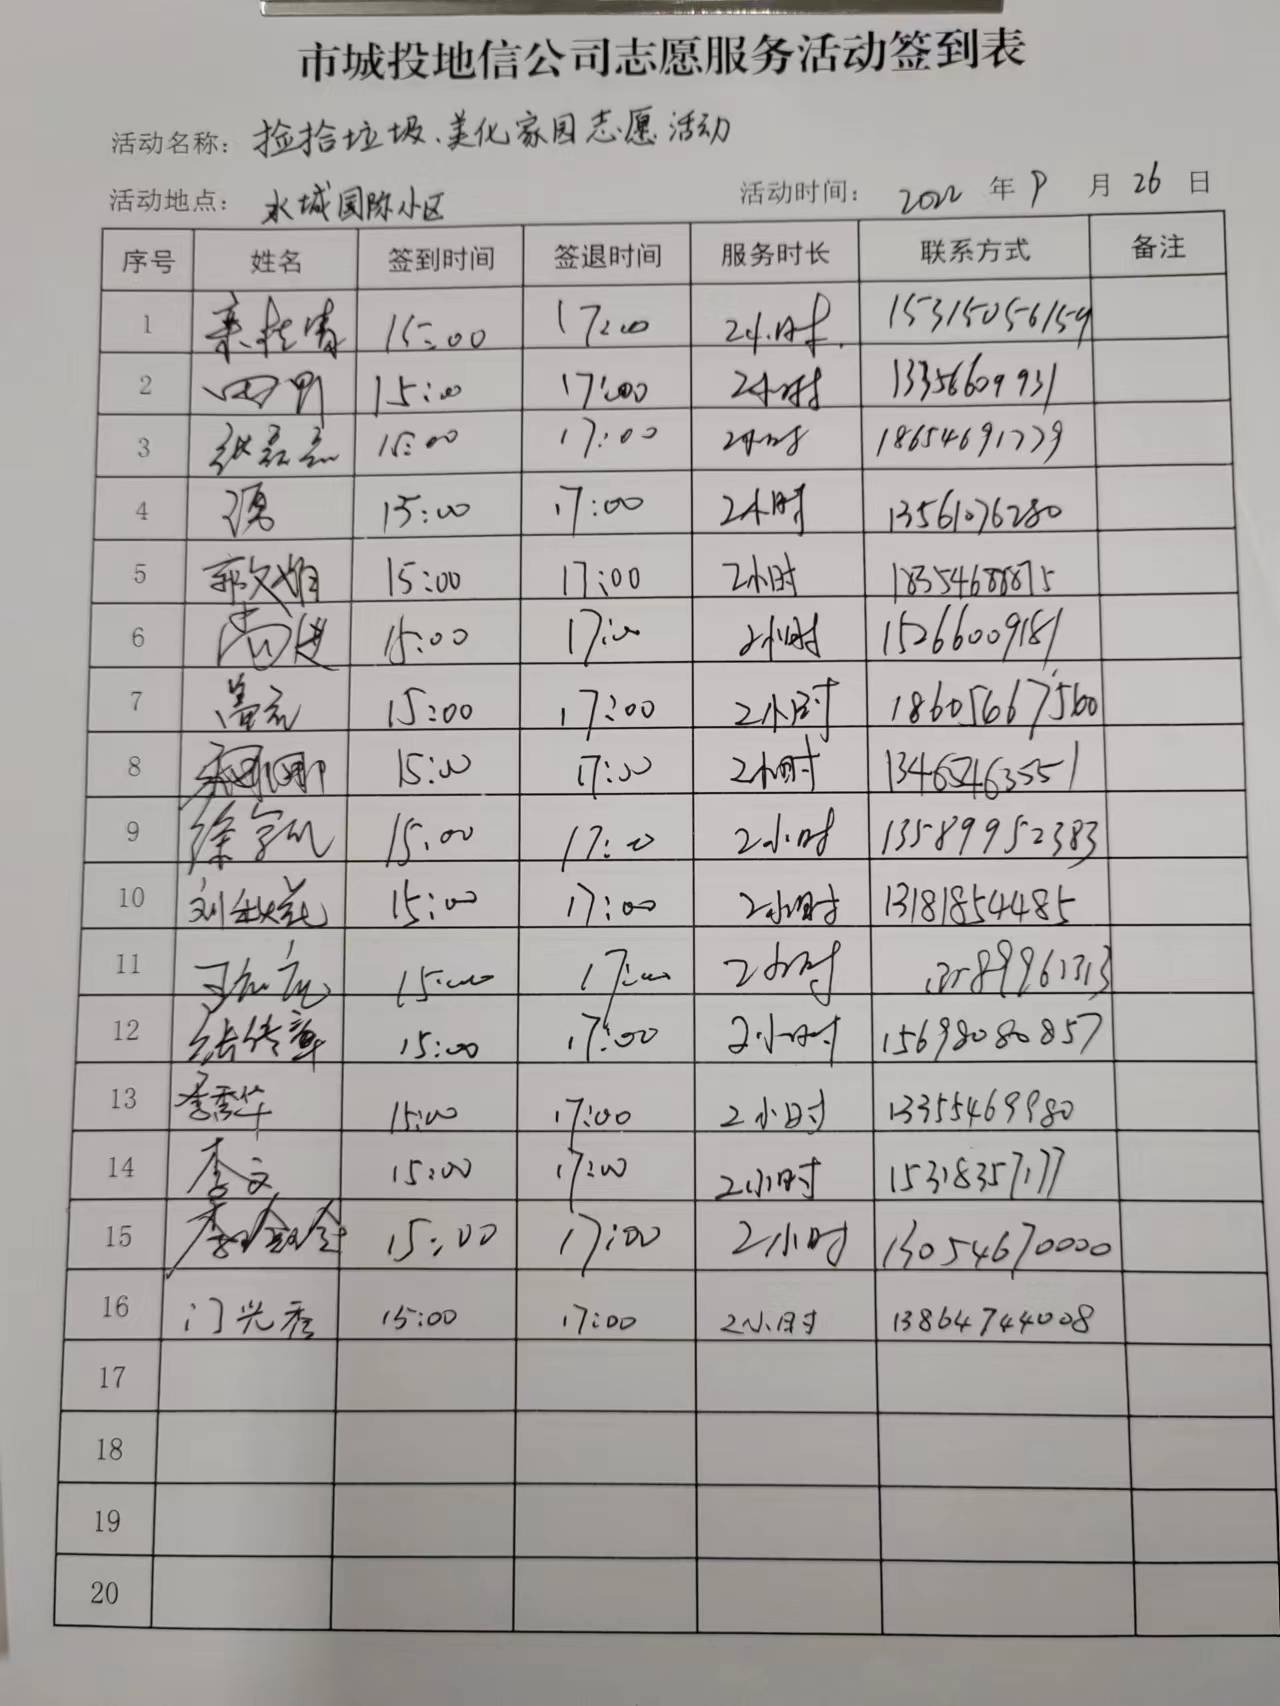 市城投地信公司志愿服务活动签到表
活动名称：捡拾垃圾、美化家园志愿活动
活动地点：水城国际小区 活动时间：2022 年 9 月 26 日
序号 姓名 签到时间 签退时间 服务时长 联系方式 备注
1 15:00 17:00 2小时 15315056159
2 15:00 17:00 2小时 13356609931
3 15:00 17:00 2小时 18654691779
4 15:00 17:00 2小时 13561076280
5 15:00 17:00 2小时 18354688875
6 尚进 15:00 17:00 2小时 15266009181
7 15:00 17:00 2小时 18605667560
8 15:00 17:00 2小时 13465463551
9 15:00 17:00 2小时 13589952383
10 15:00 17:00 2小时 13181854485
11 15:00 17:00 2小时
12 张传章 15:00 17:00 2小时 15698080857
13 李秀华 15:00 17:00 2小时 13355469980
14 李文 15:00 17:00 2小时 15318357177
15 15:00 17:00 2小时 13054670000
16 门兴香 15:00 17:00 2小时 13864744008
17
18
19
20